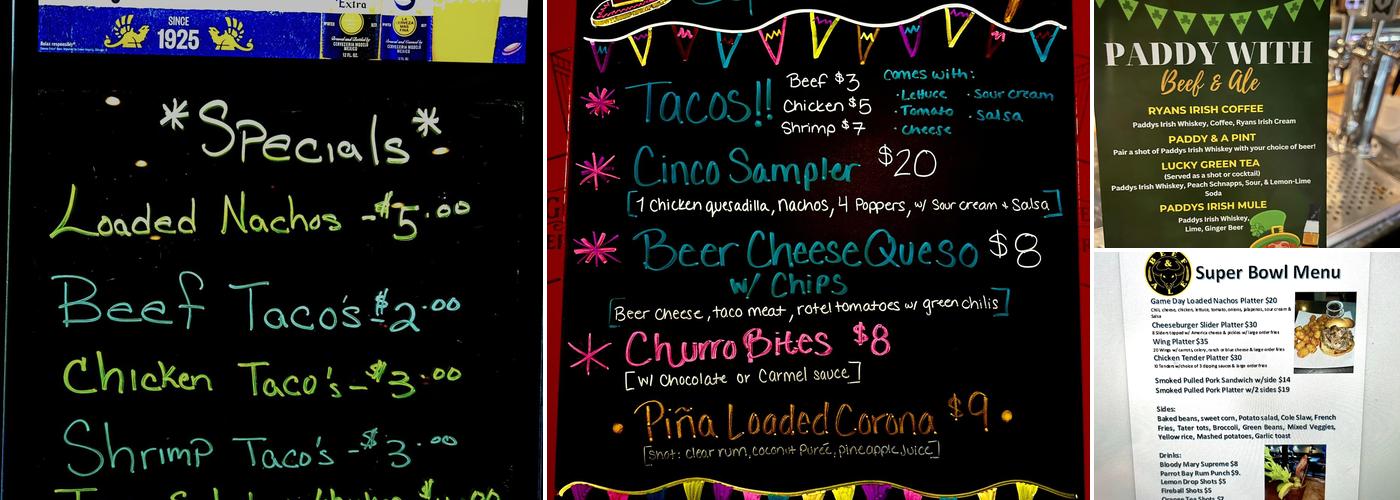 Extra
SINCE
1925
LA CERVEZA MAS FINA
CERVECERIA MODELO
MEXICO
CERVECERIA MODELO
MEXICO
Relax responsibly
*Specials*
Loaded Nachos -$5.00
Beef Taco's $2.00
Chicken Taco's-$3.00
Shrimp Taco's -$3.00
Tacos!!
Beef $3
Chicken $5
Shrimp $7
Comes with:
• Lettuce • Sour cream
• Tomato • Salsa
• Cheese
Cinco Sampler $20
[1 Chicken quesadilla, nachos, 4 Poppers, w/ Sour cream + Salsa]
Beer Cheese Queso $8
w/ Chips
[Beer cheese, taco meat, rotel tomatoes w/ green chilis]
Churro Bites $8
[w/ Chocolate or Carmel sauce]
• Piña Loaded Corona $9 •
[Shot: clear rum, coconut Purée, pineapple juice]
PADDY WITH
Beef & Ale
RYANS IRISH COFFEE
Paddys Irish Whiskey, Coffee, Ryans Irish Cream
PADDY & A PINT
Pair a shot of Paddys Irish Whiskey with your choice of beer!
LUCKY GREEN TEA
(Served as a shot or cocktail)
Paddys Irish Whiskey, Peach Schnapps, Sour, & Lemon-Lime
Soda
PADDYS IRISH MULE
Paddys Irish Whiskey,
Lime, Ginger Beer
BEEF & ALE
Super Bowl Menu
Game Day Loaded Nachos Platter $20
Chili, cheese, chicken, lettuce, tomato, onions, jalapenos, sour cream &
Salsa
Cheeseburger Slider Platter $30
8 Sliders topped w/ American cheese & pickles w/ large order fries
Wing Platter $35
20 Wings w/ carrots, celery, ranch or blue cheese & large order fries
Chicken Tender Platter $30
10 Tenders w/ choice of 3 dipping sauces & large order fries
Smoked Pulled Pork Sandwich w/side $14
Smoked Pulled Pork Platter w/2 sides $19
Sides:
Baked beans, sweet corn, Potato salad, Cole Slaw, French
Fries, Tater tots, Broccoli, Green Beans, Mixed Veggies,
Yellow rice, Mashed potatoes, Garlic toast
Drinks:
Bloody Mary Supreme $8
Parrot Bay Rum Punch $9.
Lemon Drop Shots $5
Fireball Shots $5
Orange Tea Shots $7